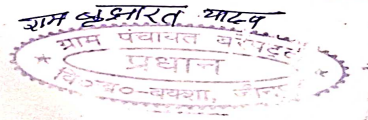 राम बृक्षारत यादव
ग्राम पंचायत
प्रधान
वि०ख०-बक्शा, जौन